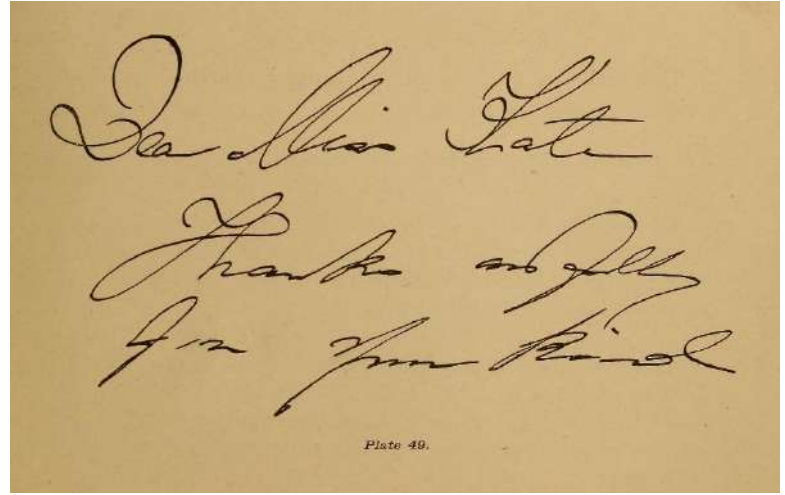 Dear Miss Kate
Thanks awfully
for your kind
Plate 49.